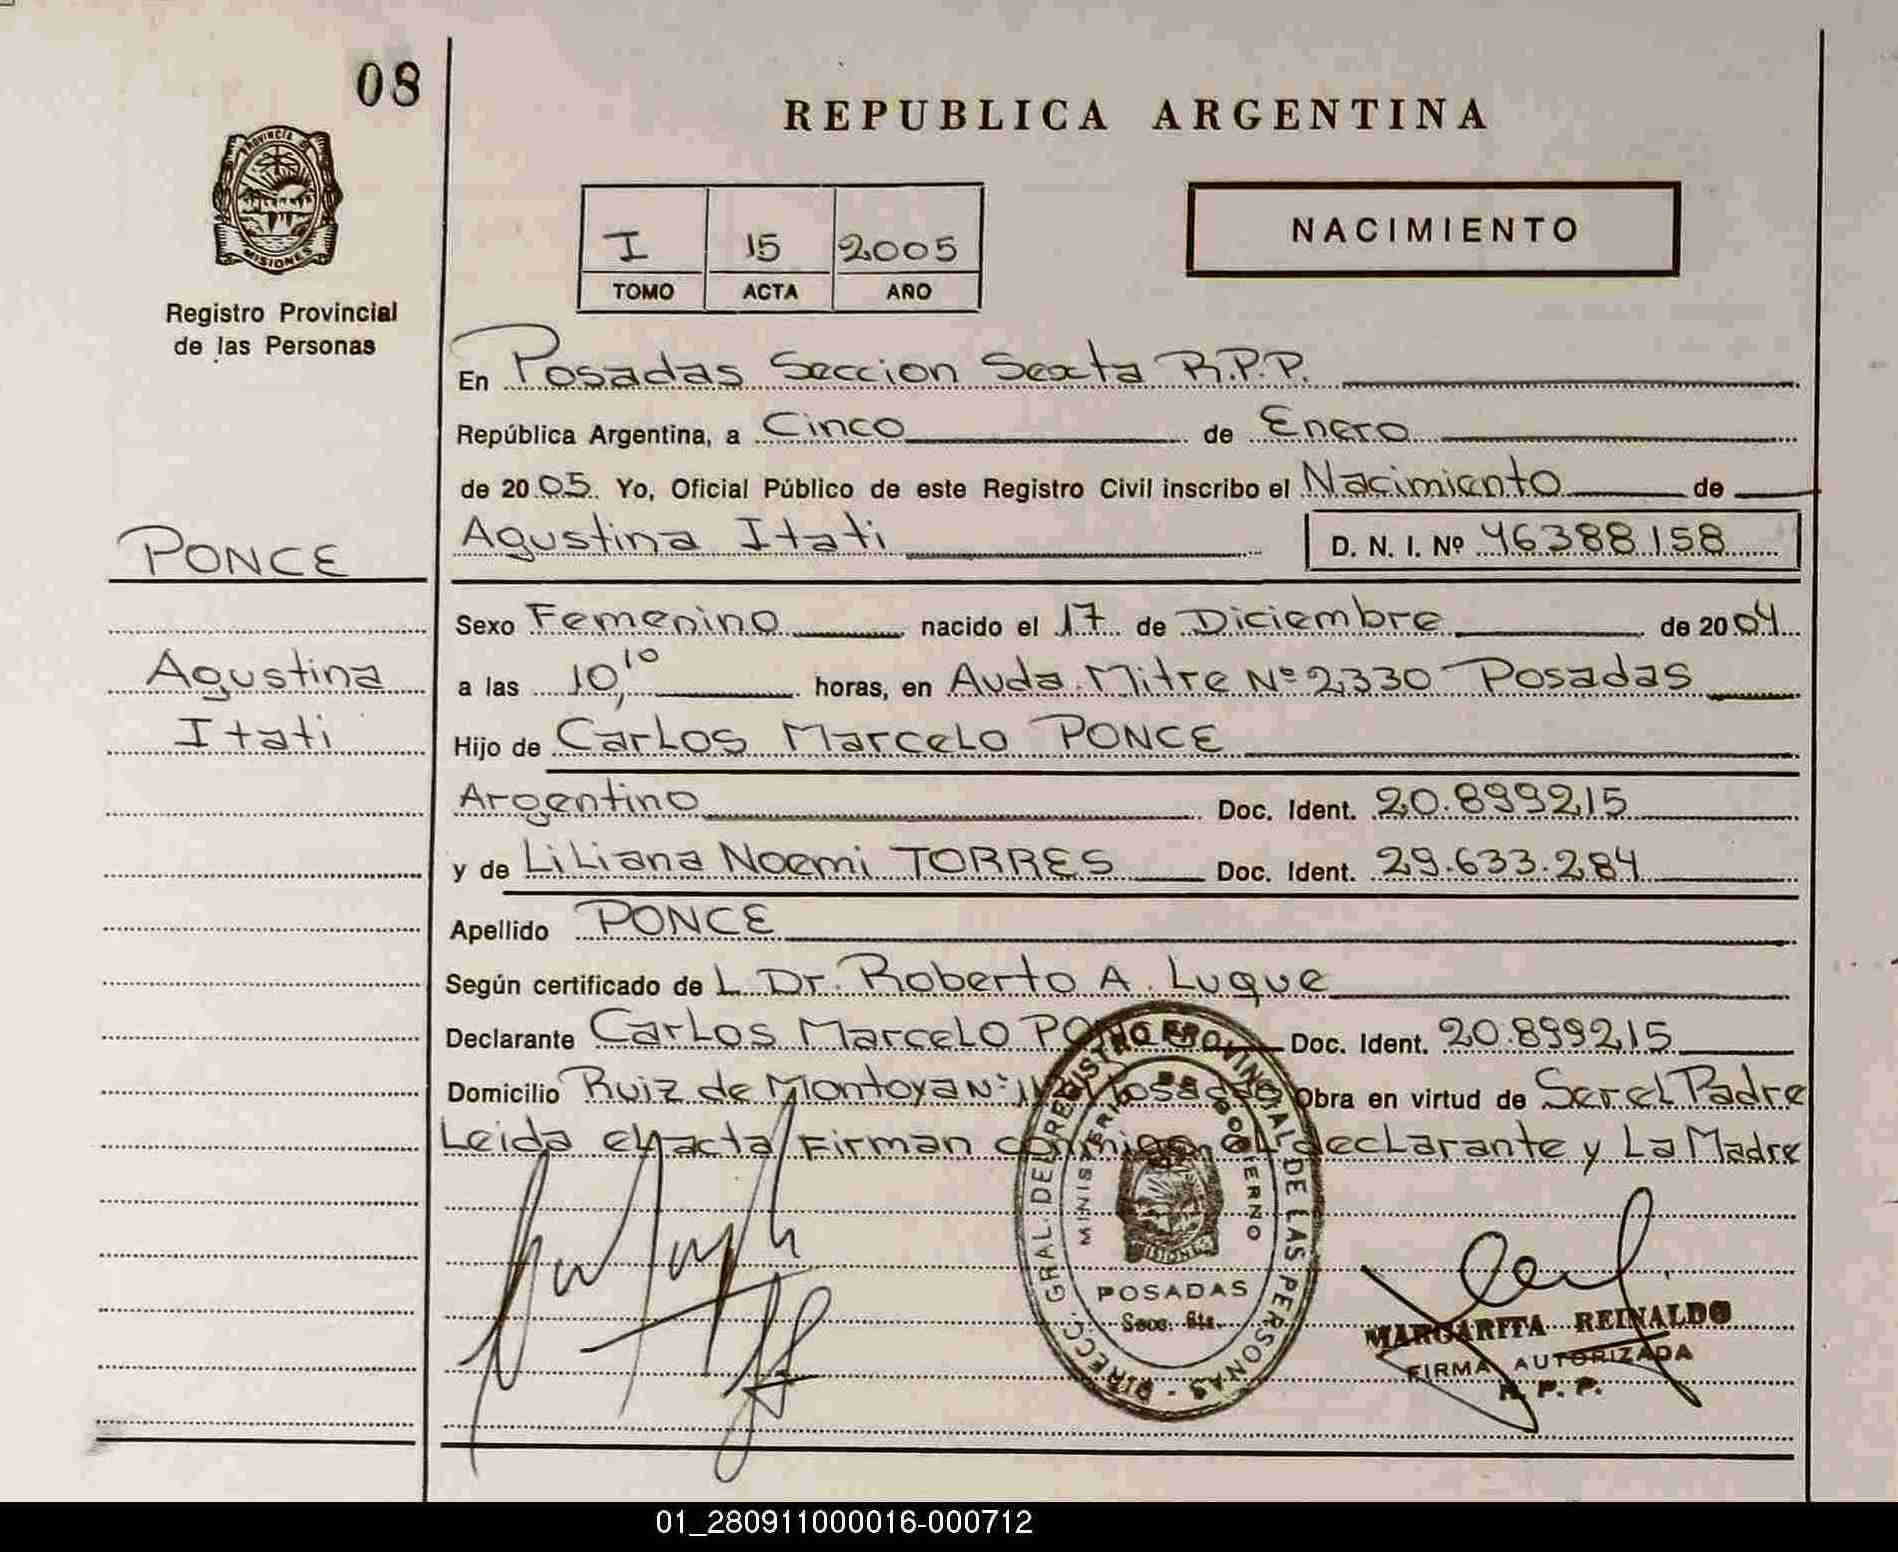 08
REPUBLICA ARGENTINA
PROVINCIA DE
MISIONES
Registro Provincial
de las Personas
NACIMIENTO
I 15 2005
TOMO ACTA AÑO
En Posadas Seccion Sexta R.P.P.
República Argentina, a Cinco de Enero
de 2005. Yo, Oficial Público de este Registro Civil inscribo el Nacimiento de
Agustina Itati D. N. I. Nº 46388158
PONCE
Agustina
Itati
Sexo Femenino nacido el 17 de Diciembre de 2004
a las 10,10 horas, en Avda. Mitre Nº 2330 Posadas
Hijo de Carlos Marcelo PONCE
Argentino Doc. Ident. 20.899215
y de Liliana Noemi TORRES Doc. Ident. 29.633.284
Apellido PONCE
Según certificado de L Dr. Roberto A. Luque
Declarante Carlos Marcelo Doc. Ident. 20.899215
Domicilio Ruiz de Montoya Nº Posadas Obra en virtud de Ser el Padre
Leida el acta Firman conmigo el declarante y La Madre
DIRECC. GRAL. DEL REGISTRO PROVINCIAL DE LAS PERSONAS
MINISTERIO DE GOBIERNO
MISIONES
POSADAS
Secc. 6ta.
MARGARITA REINALDO
FIRMA AUTORIZADA
R. P. P.
01_280911000016-000712